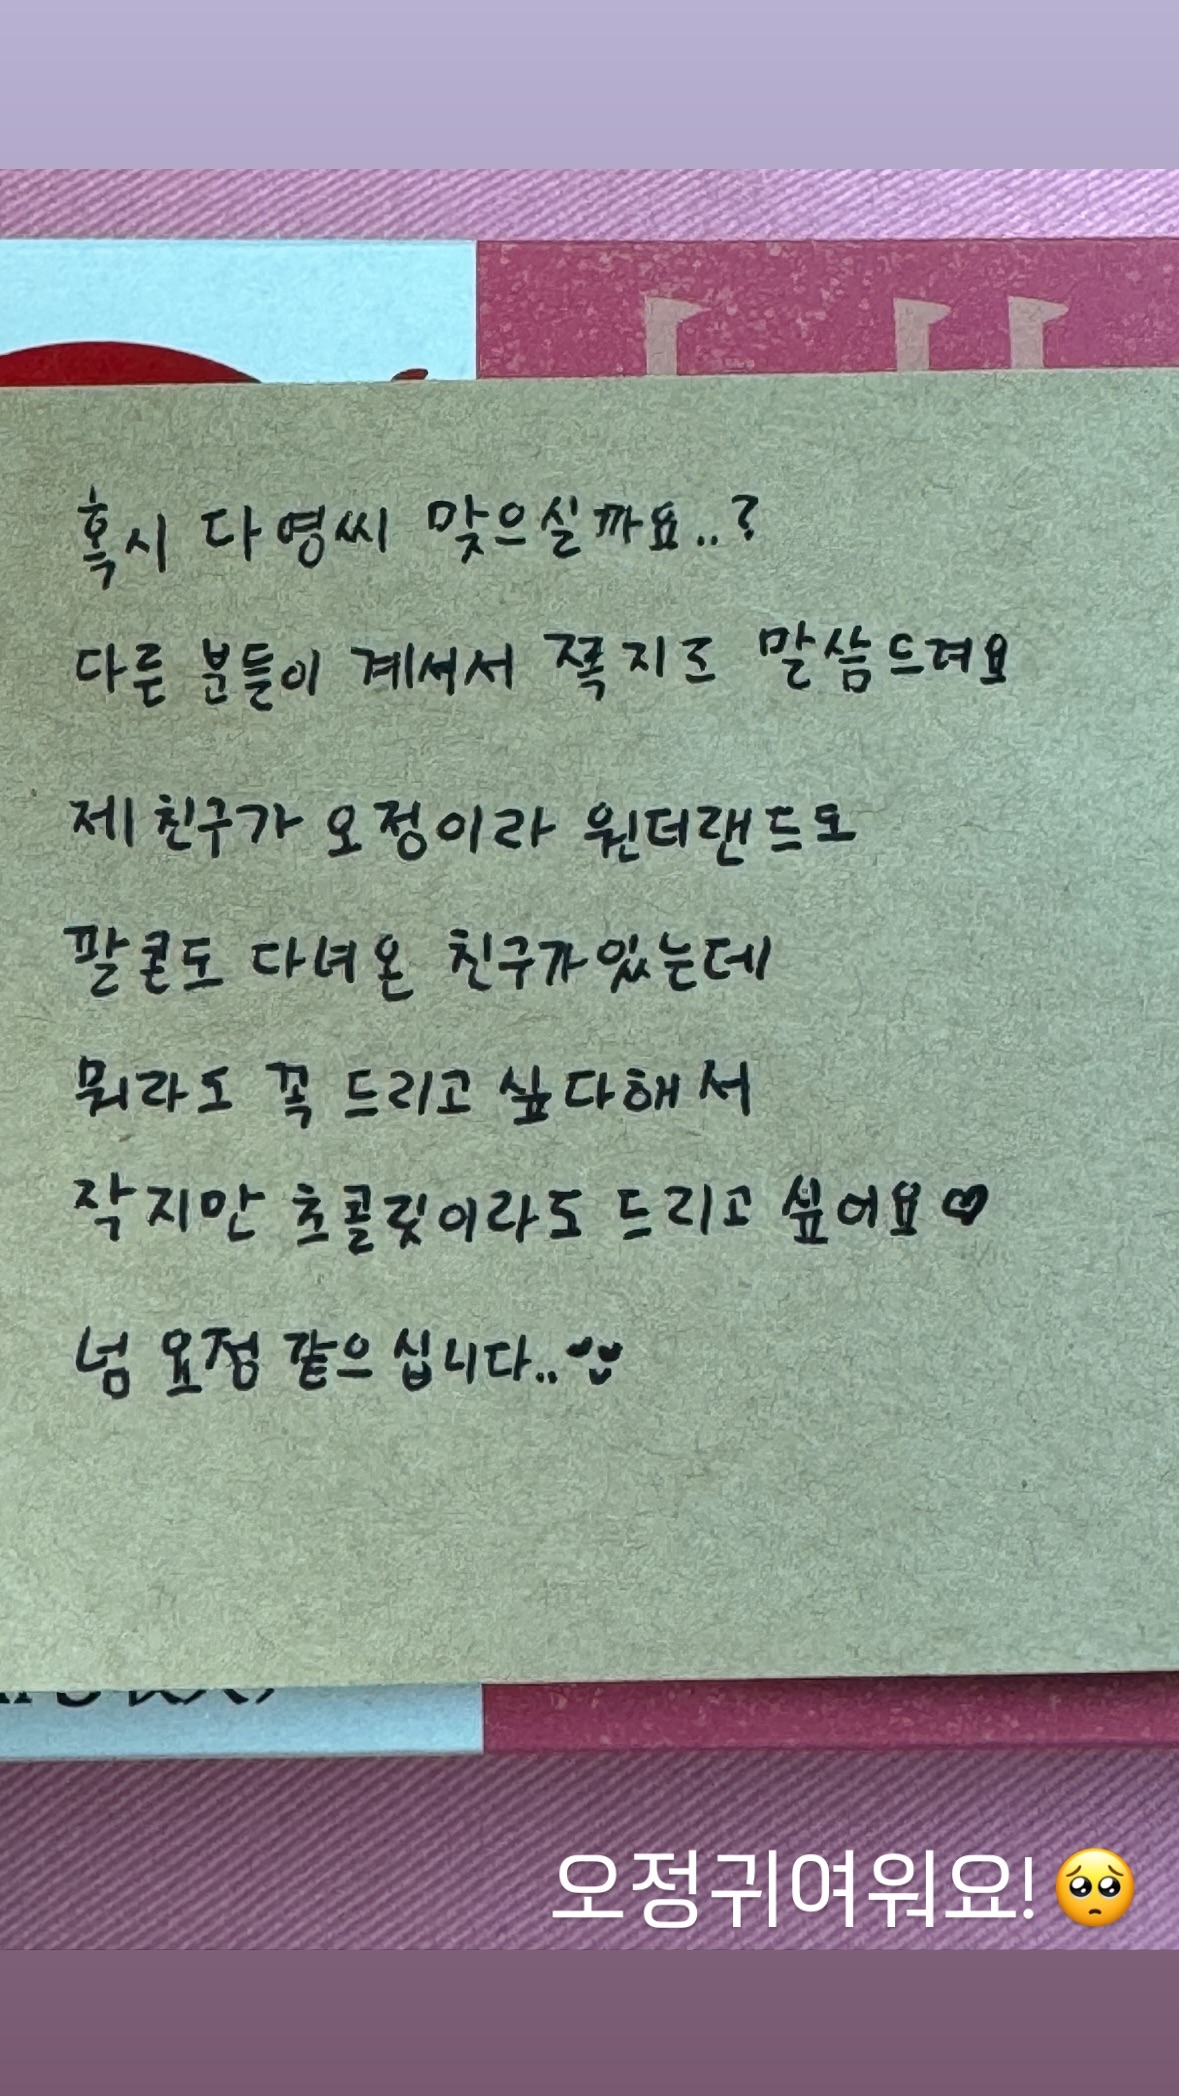 혹시 다영씨 맞으실까요..?
다른 분들이 계셔서 쪽지로 말씀드려요
제 친구가 오정이라 원더랜드도
팔콘도 다녀온 친구가있는데
뭐라도 꼭 드리고 싶다해서
작지만 초콜릿이라도 드리고 싶어요♡
넘 요정 같으십니다..
오정귀여워요!🥺